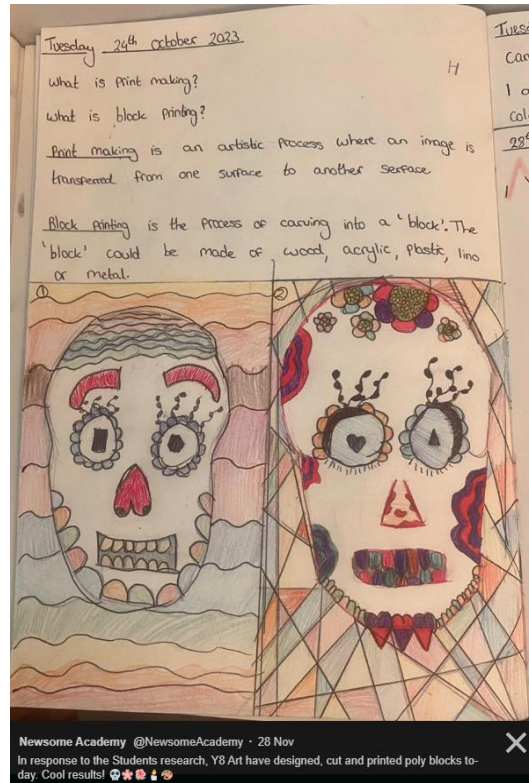 Tuesday 24th october 2023
H
What is print making?
What is block printing?
Print making is an artistic process where an image is
transferred from one surface to another serface.
Block printing is the process of carving into a 'block'. The
'block' could be made of wood, acrylic, plastic, lino
or metal.
①
②
Tuesd
Car
I a
Col
28
Newsome Academy @NewsomeAcademy · 28 Nov
In response to the Students research, Y8 Art have designed, cut and printed poly blocks to-
day. Cool results! 💀🌸🌺🕯️🎨